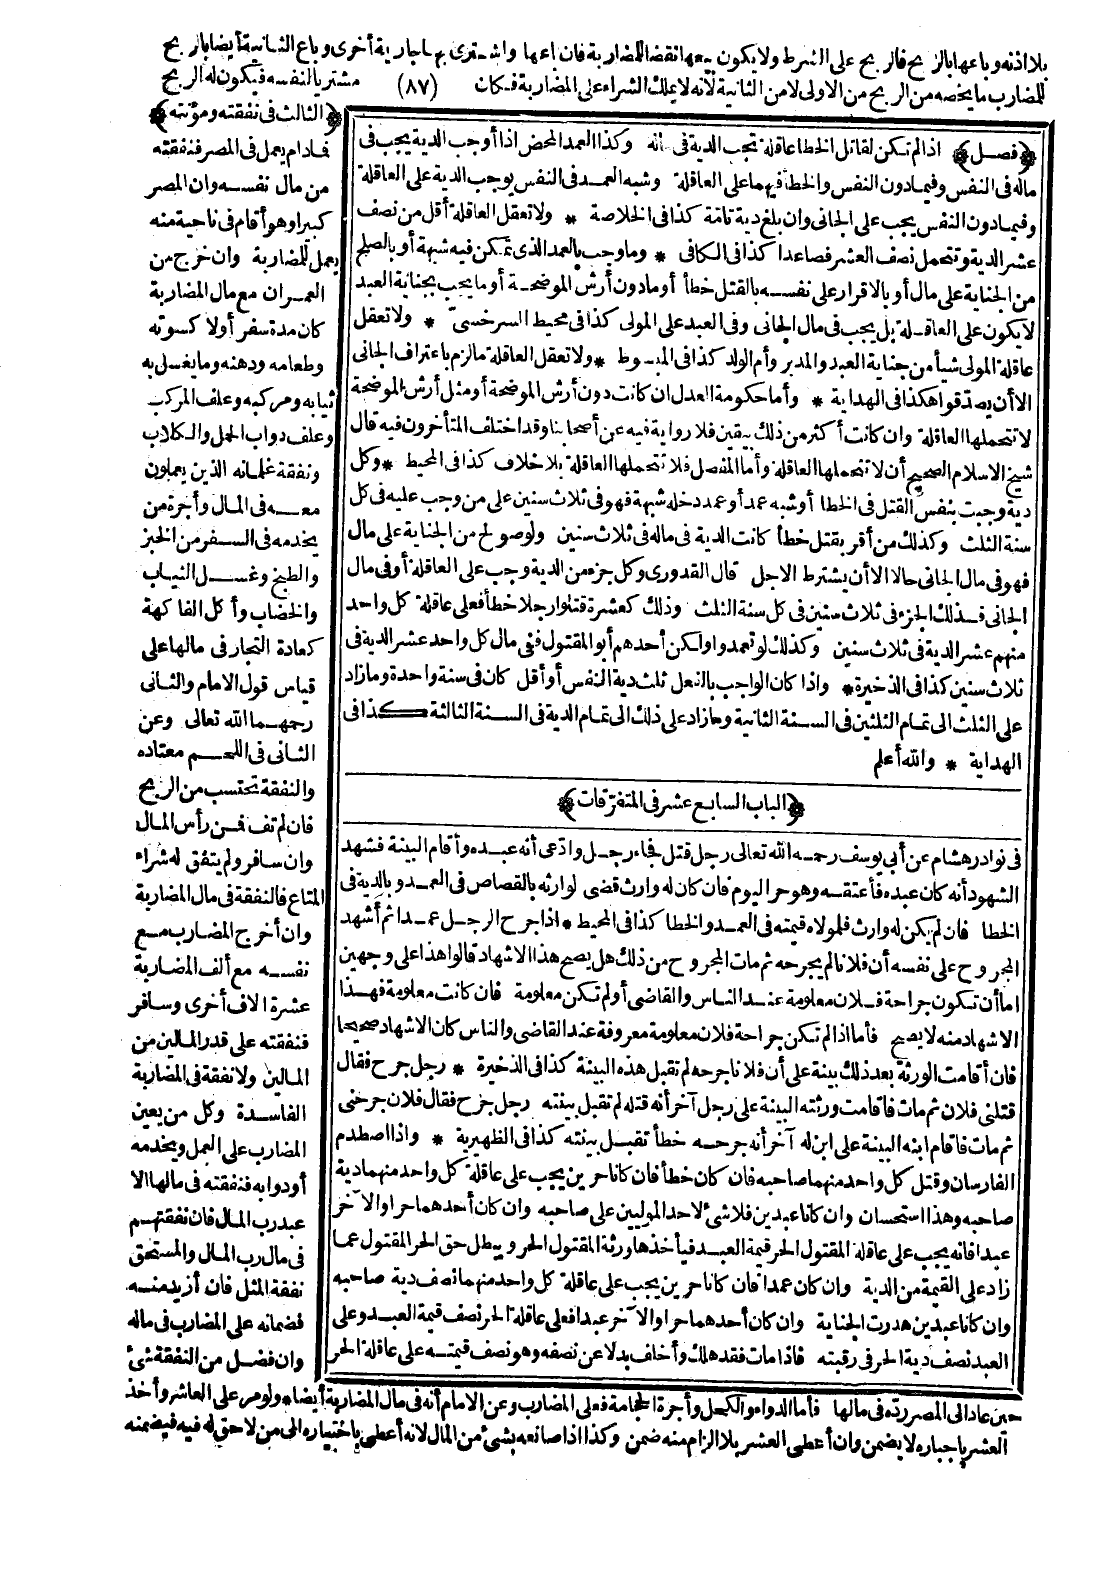 بلا اذنه وباعها بالربح فالربح على الشرط ولا يكون بيعها نقضا للمضاربة فان باعها واشترى بها جارية أخرى وباع الثانية أيضا بالربح
للمضارب ما يخصه من الربح من الاولى لا من الثانية لانه لا يملك الشراء على المضاربة فكان
(٨٧)
مشتريا لنفسه فيكون له الربح
﴿فصل﴾ اذا لم تكن لقاتل الخطا عاقلة تجب الدية فى ماله وكذا العمد المحض اذا أوجب الدية يجب فى
ماله فى النفس وفيمادون النفس والخطأ فيهما على العاقلة وشبه العمد فى النفس يوجب الدية على العاقلة
وفيمادون النفس يجب على الجانى وان بلغ دية تامة كذا فى الخلاصة * ولا تعقل العاقلة أقل من نصف
عشر الدية وتتحمل نصف العشر فصاعدا كذا فى الكافى * وما وجب بالعمد الذى تمكن فيه شبهة أو بالصلح
من الجناية على مال أو بالاقرار على نفسه بالقتل خطأ أو مادون أرش الموضحة أو ما يجب بجناية العبد
لا يكون على العاقلة بل يجب فى مال الجانى وفى العبد على المولى كذا فى محيط السرخسى * ولا تعقل
عاقلة المولى شيأ من جناية العبد والمدبر وأم الولد كذا فى المبسوط * ولا تعقل العاقلة ما لزم باعتراف الجانى
الا أن يصدقوا هكذا فى الهداية * وأما حكومة العدل ان كانت دون أرش الموضحة أو مثل أرش الموضحة
لا تتحملها العاقلة وان كانت أكثر من ذلك بيقين فلا رواية فيه عن أصحابنا وقد اختلف المتأخرون فيه قال
شيخ الاسلام الصحيح أن لا تتحملها العاقلة وأما المفصل فلا تتحملها العاقلة بلا خلاف كذا فى المحيط * وكل
دية وجبت بنفس القتل فى الخطا أو شبه عمد أو عمد دخله شبهة فهو فى ثلاث سنين على من وجب عليه فى كل
سنة الثلث وكذلك من أقر بقتل خطأ كانت الدية فى ماله فى ثلاث سنين ولو صولح من الجناية على مال
فهو فى مال الجانى حالا الا أن يشترط الاجل قال القدورى وكل جزء من الدية وجب على العاقلة أو فى مال
الجانى فذلك الجزء فى ثلاث سنين فى كل سنة الثلث وذلك كعشرة قتلوا رجلا خطأ فعلى عاقلة كل واحد
منهم عشر الدية فى ثلاث سنين وكذلك لو تعمدوا ولكن أحدهم أبو المقتول ففى مال كل واحد عشر الدية فى
ثلاث سنين كذا فى الذخيرة * واذا كان الواجب بالفعل ثلث دية النفس أو أقل كان فى سنة واحدة وما زاد
على الثلث الى تمام الثلثين فى السنة الثانية وما زاد على ذلك الى تمام الدية فى السنة الثالثة كذا فى
الهداية * والله أعلم
﴿الباب السابع عشر فى المتفرقات﴾
فى نوادر هشام عن أبى يوسف رحمه الله تعالى رجل قتل فجاء رجل وادعى أنه عبده وأقام البينة فشهد
الشهود أنه كان عبده فأعتقه وهو حر اليوم فان كان له وارث قضى لوارثه بالقصاص فى العمد وبالدية فى
الخطا فان لم يكن له وارث فلمولاه قيمته فى العمد والخطا كذا فى المحيط * اذا جرح الرجل عمدا ثم أشهد
المجروح على نفسه أن فلانا لم يجرحه ثم مات المجروح من ذلك هل يصح هذا الاشهاد قالوا هذا على وجهين
اما أن تكون جراحة فلان معلومة عند الناس والقاضى أو لم تكن معلومة فان كانت معلومة فهذا
الاشهاد منه لا يصح فأما اذا لم تكن جراحة فلان معلومة معروفة عند القاضى والناس كان الاشهاد صحيحا
فان أقامت الورثة بعد ذلك بينة على أن فلانا جرحه لم تقبل هذه البينة كذا فى الذخيرة * رجل جرح فقال
قتلنى فلان ثم مات فاقامت ورثته البينة على رجل آخر أنه قتله لم تقبل بينته رجل جرح فقال فلان جرحنى
ثم مات فاقام ابنه البينة على ابن له آخر أنه جرحه خطأ تقبل بينته كذا فى الظهيرية * واذا اصطدم
الفارسان وقتل كل واحد منهما صاحبه فان كان خطأ فان كانا حرين يجب على عاقلة كل واحد منهما دية
صاحبه وهذا استحسان وان كانا عبدين فلا شئ لاحد الموليين على صاحبه وان كان أحدهما حرا والآخر
عبدا فانه يجب على عاقلة المقتول الحر قيمة العبد فيأخذها ورثة المقتول الحر ويبطل حق الحر المقتول عما
زاد على القيمة من الدية وان كان عمدا فان كانا حرين يجب على عاقلة كل واحد منهما نصف دية صاحبه
وان كانا عبدين هدرت الجناية وان كان أحدهما حرا والآخر عبدا فعلى عاقلة الحر نصف قيمة العبد وعلى
العبد نصف دية الحر فى رقبته فاذا مات فقد هلك وأخلف بدلا عن نصفه وهو نصف قيمته على عاقلة الحر
﴿الثالث فى نفقته ومؤنته﴾
فمادام يعمل فى المصر فنفقته
من مال نفسه وان المصر
كبيرا وهو أقام فى ناحية منه
يعمل للمضاربة وان خرج من
العمران مع مال المضاربة
كان مدة سفر أولا كسوته
وطعامه ودهنه وما يغسل به
ثيابه ومركبه وعلف المركب
وعلف دواب الحمل والكلاب
ونفقة غلمانه الذين يعملون
معه فى المال وأجرة من
يخدمه فى السفر من الخبز
والطبخ وغسل الثياب
والخضاب وأكل الفاكهة
كعادة التجار فى مالها على
قياس قول الامام والثانى
رحمهما الله تعالى وعن
الثانى فى اللحم معتاده
والنفقة تحتسب من الربح
فان لم تف فمن رأس المال
وان سافر ولم يتفق له شراء
المتاع فالنفقة فى مال المضاربة
وان أخرج المضارب مع
نفسه مع ألف المضاربة
عشرة آلاف أخرى وسافر
فنفقته على قدر المالين من
المالين ولا نفقة فى المضاربة
الفاسدة وكل من يعين
المضارب على العمل ويخدمه
أو دوابه فنفقته فى مالها الا
عبد رب المال فان نفقتهم
فى مال رب المال والمستحق
نفقة المثل فان أزيد منه
فضمانه على المضارب فى ماله
وان فضل من النفقة شئ
حين عاد الى المصر رده فى مالها فأما الدواء والكحل وأجرة الحجامة فعلى المضارب وعن الامام أنه فى مال المضاربة أيضا * ولو مر على العاشر وأخذ
العشر باجباره لا يضمن وان أعطى العشر بلا الزام منه ضمن وكذا اذا صانعه بشئ من المال لانه أعطى باختياره الى من لا حق له فيه فيضمنه